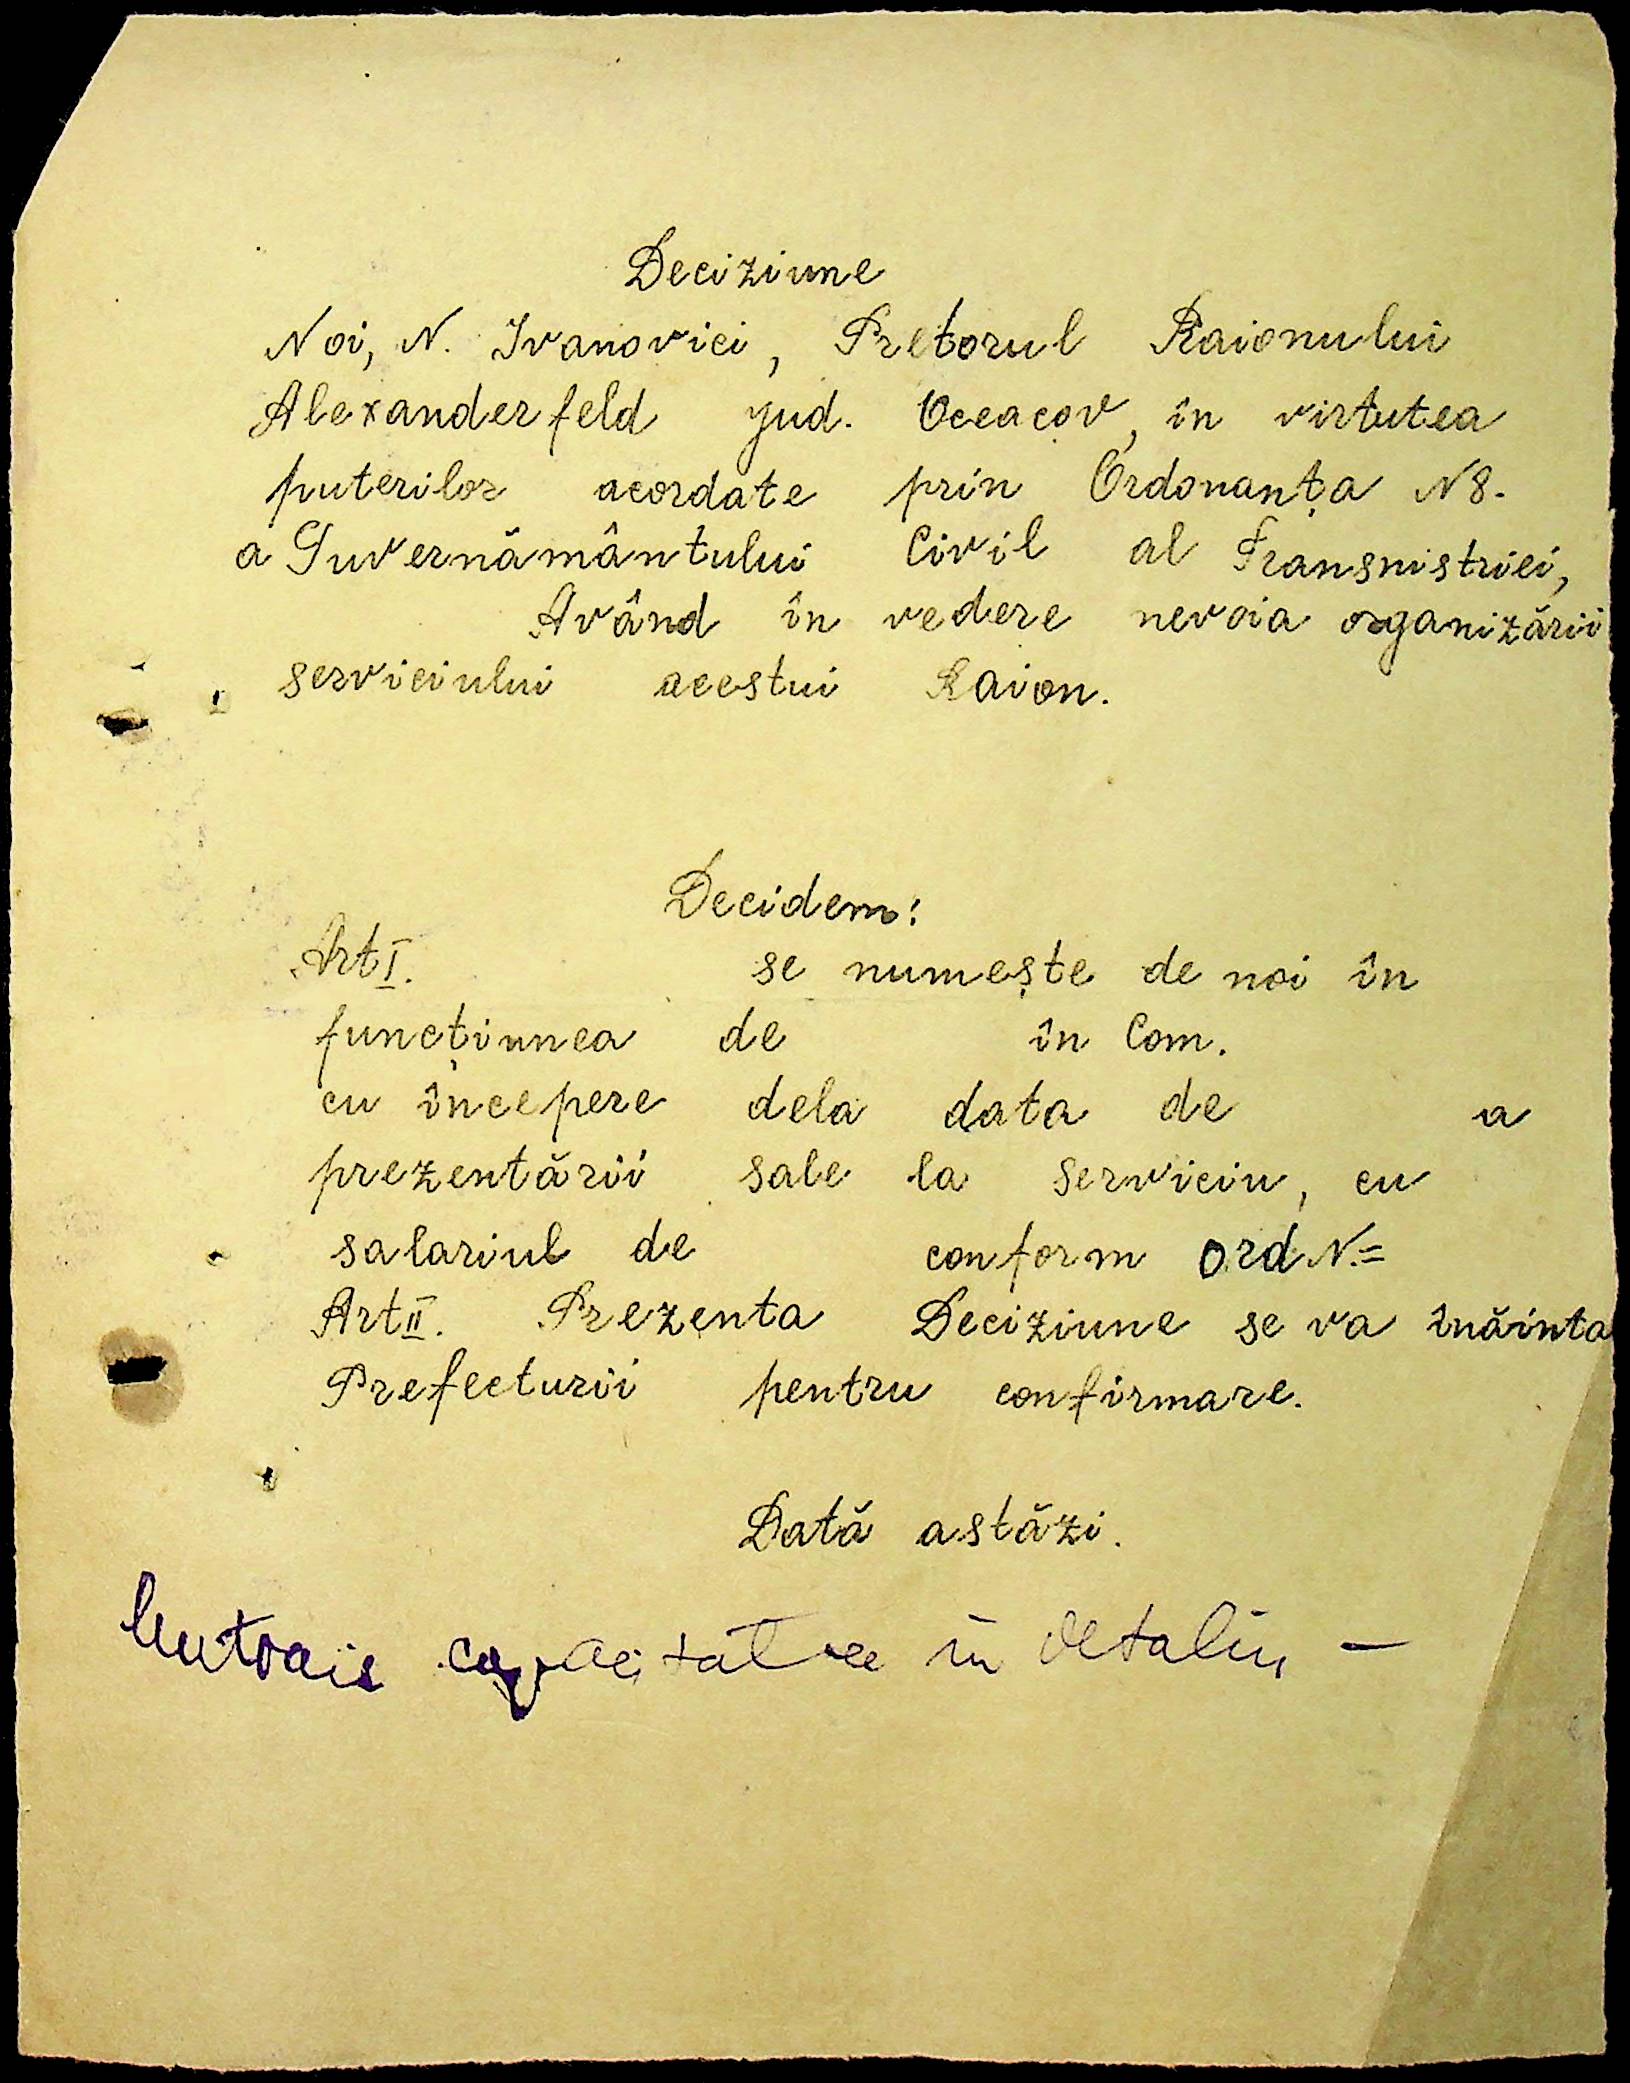 Deciziune
Noi, N. Ivanovici, Pretorul Raionului
Alexanderfeld Jud. Oceacov, în virtutea
puterilor acordate prin Ordonanța N8.
a Guvernământului Civil al Transnistriei,
Având în vedere nevoia organizării
serviciului acestui Raion.
Decidem:
Art I. se numește de noi în
funcțiunea de în Com.
cu începere dela data de a
prezentării sale la serviciu, cu
salariul de conform Ord N.=
Art II. Prezenta Deciziune se va înăinta
Prefecturii pentru confirmare.
Dată astăzi.
în detaliu —